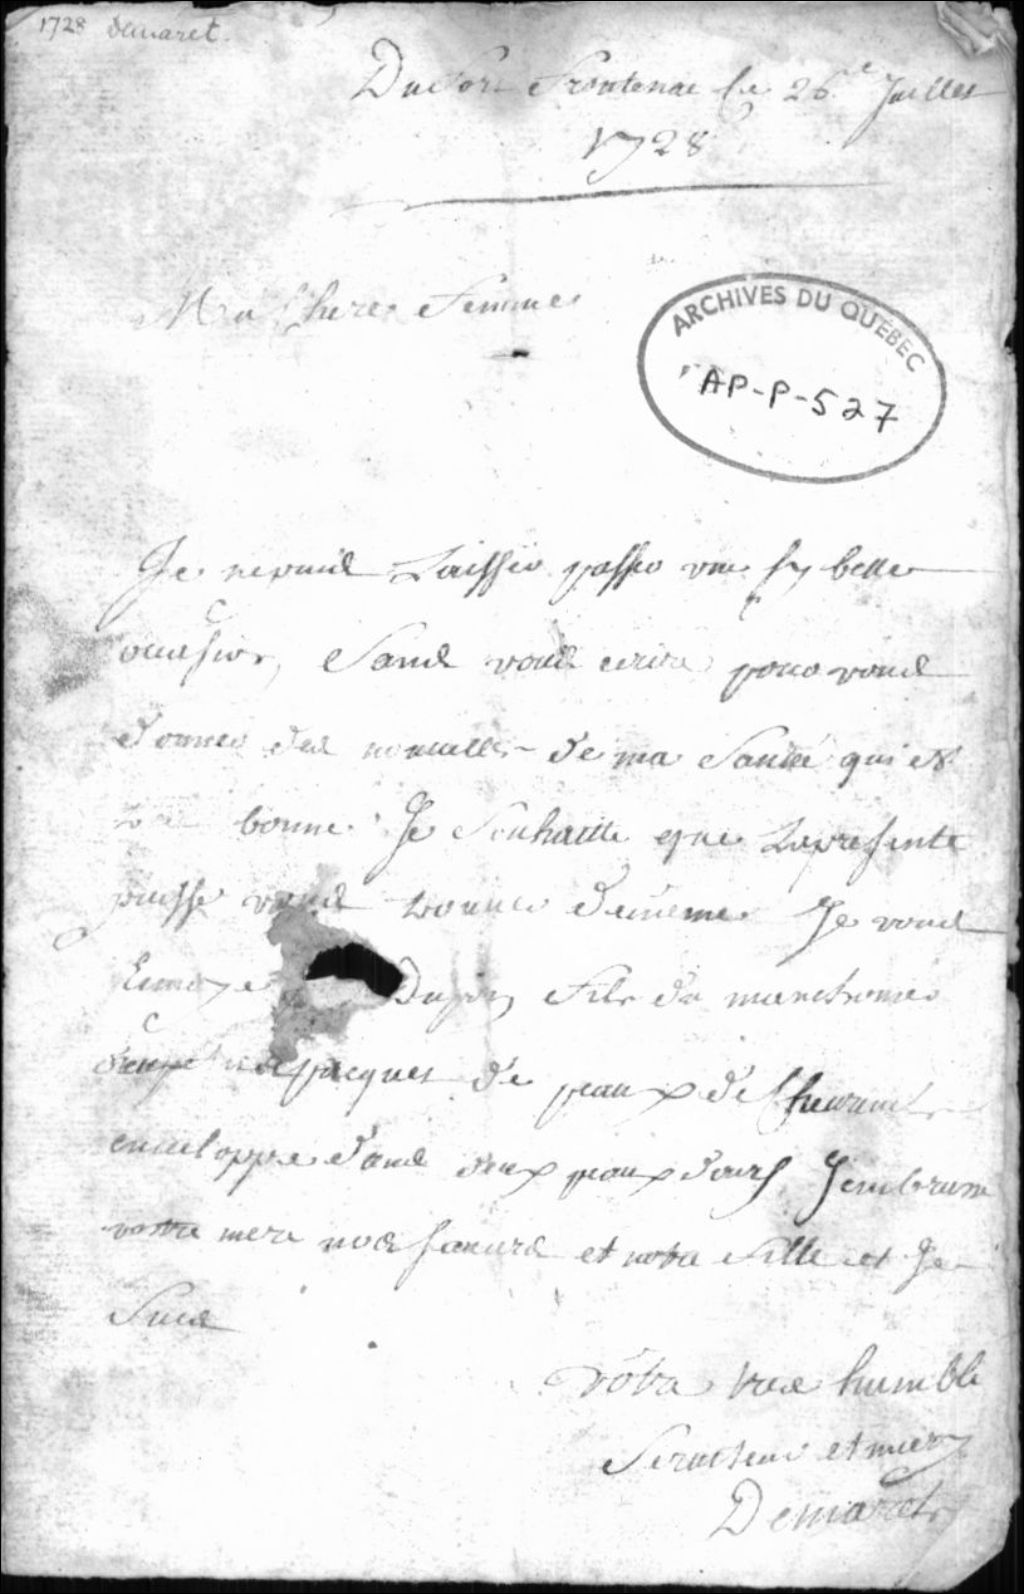 1728 demaret.
Du fort frontenac Le 26e Juillet
1728
Ma Chere femme
ARCHIVES DU QUÉBEC
AP-P-527
Je nepuis Laisser passer une sy belle
occasion, Sans vous ecrire pour vous
donner des nouuelles de ma Santé qui est
bonne Je Souhaitte que Lapresente
puisse vous trouuer demême Je vous
Enuoye fils du
paques de peaux de Cheureuils
enueloppés dans deux peaux dours Jembrasse
vostre mere nos soeurs et notre fille et Je
Suis
votre tres humble
Seruiteur et mary
Demaret